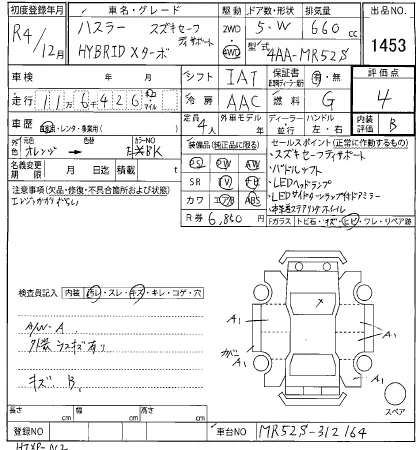 初度登録年月 車名・グレード 駆動 ドア数・形状 排気量 出品NO.
R4/12月 ハスラー スズキセーフティサポート 2WD 4WD 5・W 660cc 1453
HYBRID Xターボ 型式 4AA-MR52S
車検 年 月 シフト IAT 保証書 有・無 評価点
走行 116426 マイル 冷房 AAC 燃料 G 4
車歴 自家用・レンタ・事業用( ) 定員 4人 外車モデル 年 ディーラー 並行 ハンドル 左・右 内装評価 B
色 元色 オレンジ 色替 カラーNO BK
装備品(純正品に限る) セールスポイント(正常に作動するもの)
名義変更期限 月 日迄 積載 t
PS PW ・スズキセーフティサポート
AW ・パドルシフト
SR TV ナビ ・LEDヘッドランプ
カワ エアB ABS ・LEDサイドターンランプ付ドアミラー
R券 6,860 ・本革巻ステアリングホイール
注意事項(欠品・修復・不具合箇所および状態)
Fガラス トビ石・キズ・ヒビ・ワレ・リペア跡
検査員記入 内装 汚レ・スレ・キズ・キレ・コゲ・穴
A/W-A
外装 ラスキズ有り
キズ B
A1 A1 A1 A1
スペア
長さ cm 幅 cm 高さ cm
登録NO 車台NO MR52S-312164